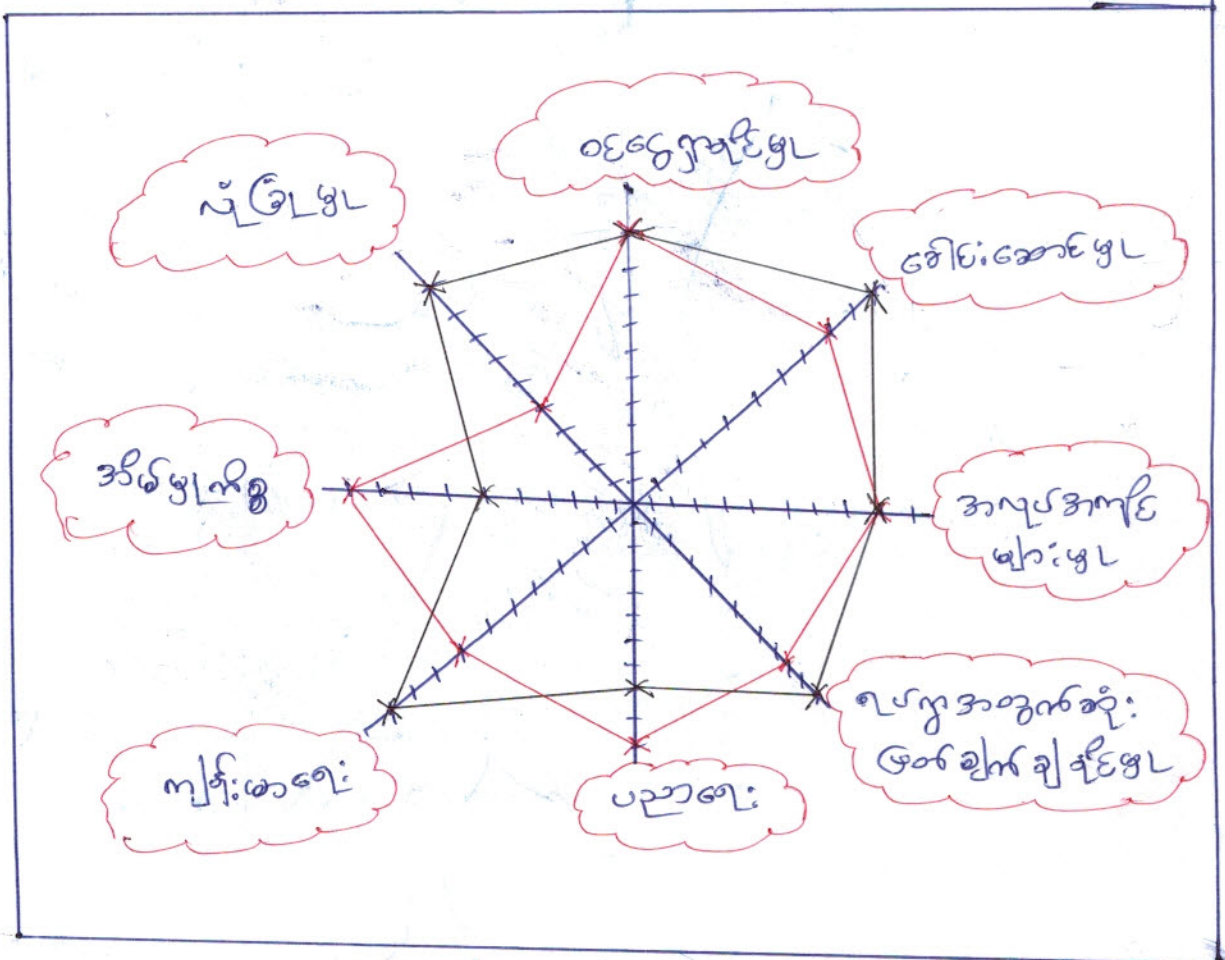 ဝင်ငွေရှာနိုင်မှု
ခေါင်းဆောင်မှု
အလုပ်အကိုင်
များမှု
ရပ်ရွာအတွက်ဆုံး
ဖြတ်ချက်ချနိုင်မှု
ပညာရေး
ကျန်းမာရေး
အိမ်မှုကိစ္စ
လုံခြုံမှု